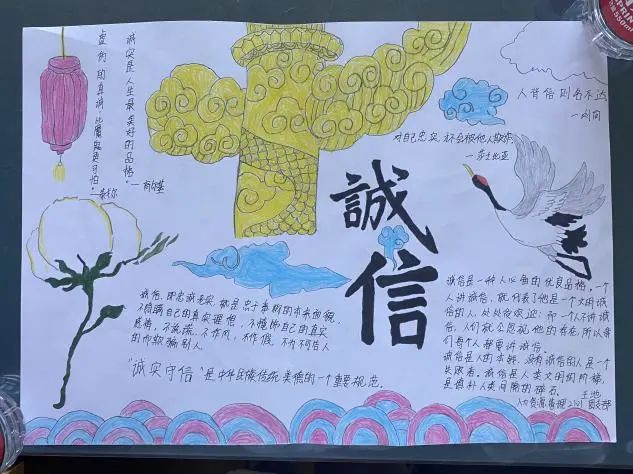 诚实是人生最美好的品格
虚伪的真诚 比魔鬼更可怕
人背信则名不达
—刘向
对自己忠实 不会被他人欺诈
—莎士比亚
誠
信
诚信，即忠诚老实，就是忠于事物的本来面貌，
不隐瞒自己的真实思想，不掩饰自己的真实
感情，不说谎，不作风，不作假，不为不可告人
的而欺骗别人。
"诚实守信"是中华民族传统美德的一个重要规范。
诚信是一种人人必备的优良品格，一个
人讲诚信，就代表了他是一个文明诚
信的人，处处受欢迎；而一个人不讲诚
信，人们就会忽视他的存在，所以每
个人都要讲诚信。
诚信是人的本钱，没有诚信的人是一个
失败者。诚信是人类文明的阶梯，
是填补人类间隙的砖石。
人力资源管理2101